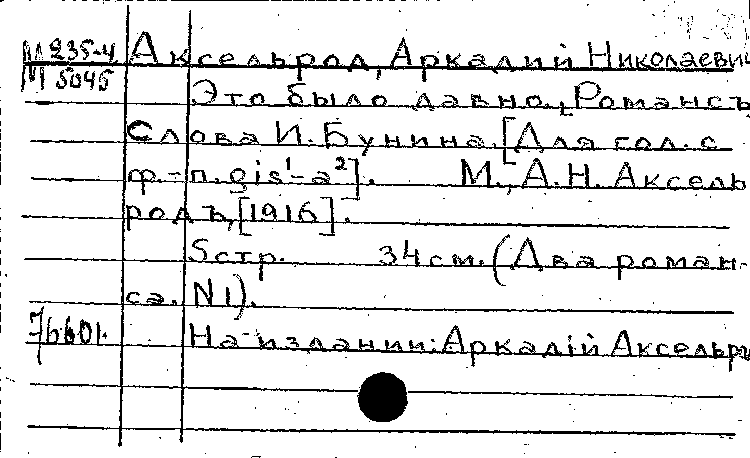 М 235-4 Аксельрод, Аркадий Николаевич
М 5045 Это было давно. Романсъ
Слова И. Бунина. [Для гол. с
ф.-п. gis¹-a²]. М., А.Н. Аксель
родъ, [1916].
5 стр. 34 см. (Два роман-
са. N 1).
76601. На издании: Аркадій Аксельр